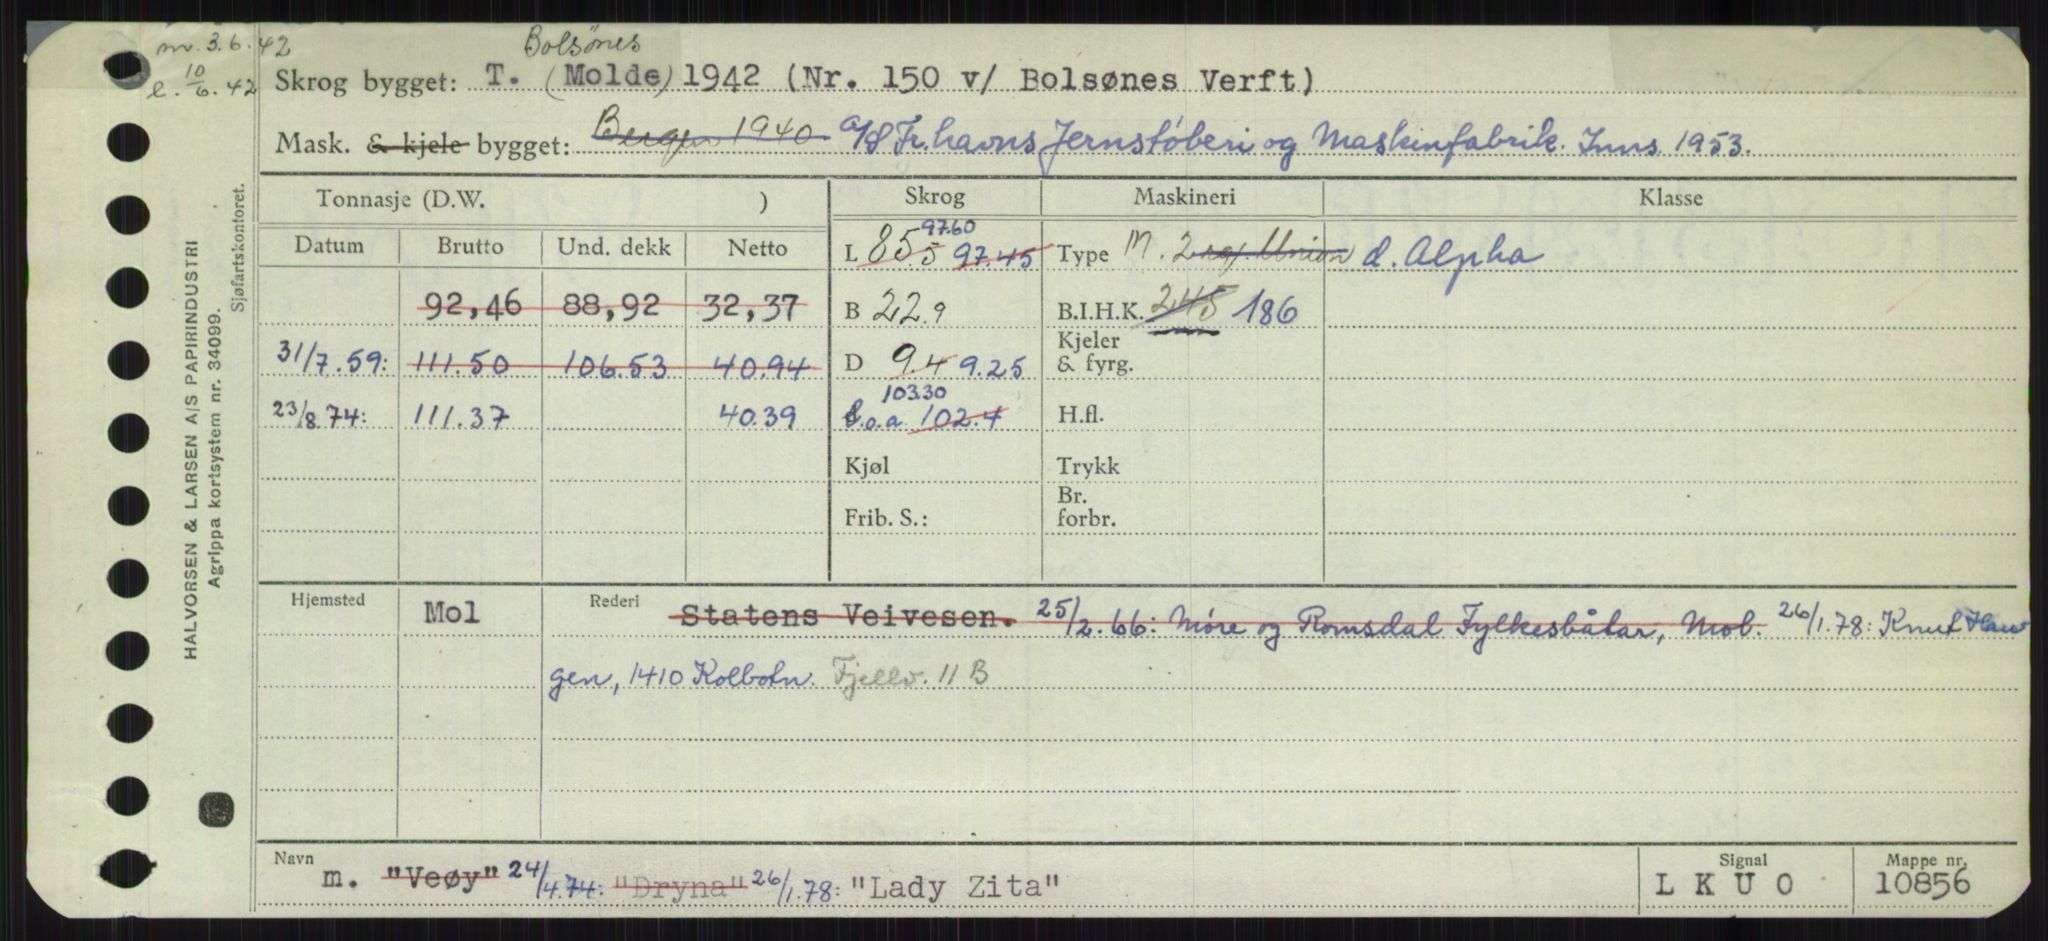 m. 3.6.42
l. 10/6.42
Bolsönes
Skrog bygget: T. (Molde) 1942 (Nr. 150 v/ Bolsønes Verft)
Mask. & kjele bygget: Bergen 1940 A/S Fr.havns Jernstøberi og Maskinfabrik. Inns. 1953.
Tonnasje (D.W. )
Skrog
Maskineri
Klasse
Datum
Brutto
Und. dekk
Netto
92,46 88,92 32,37
31/7.59: 111.50 106.53 40.94
23/8.74: 111.37 40.39
97.60
L 85.5 97.45
B 22.9
D 9.4 9.25
103.30
l.o.a. 102.4
Kjøl
Frib. S.:
Type M. 2 Union d. Alpha
B.I.H.K. 245 186
Kjeler
& fyrg.
H.fl.
Trykk
Br.
forbr.
Hjemsted Mol
Rederi Statens Veivesen. 25/2.66: Møre og Romsdal Fylkesbåtar, Mol. 26/1.78: Knut Hau
gen, 1410 Kolbotn. Fjellv. 11 B
Navn
m. "Veøy" 24/4.74: "Dryna" 26/1.78: "Lady Zita"
Signal
L K U O
Mappe nr.
10856
HALVORSEN & LARSEN A/S PAPIRINDUSTRI
Agrippa kortsystem nr. 34099.
Sjøfartskontoret.